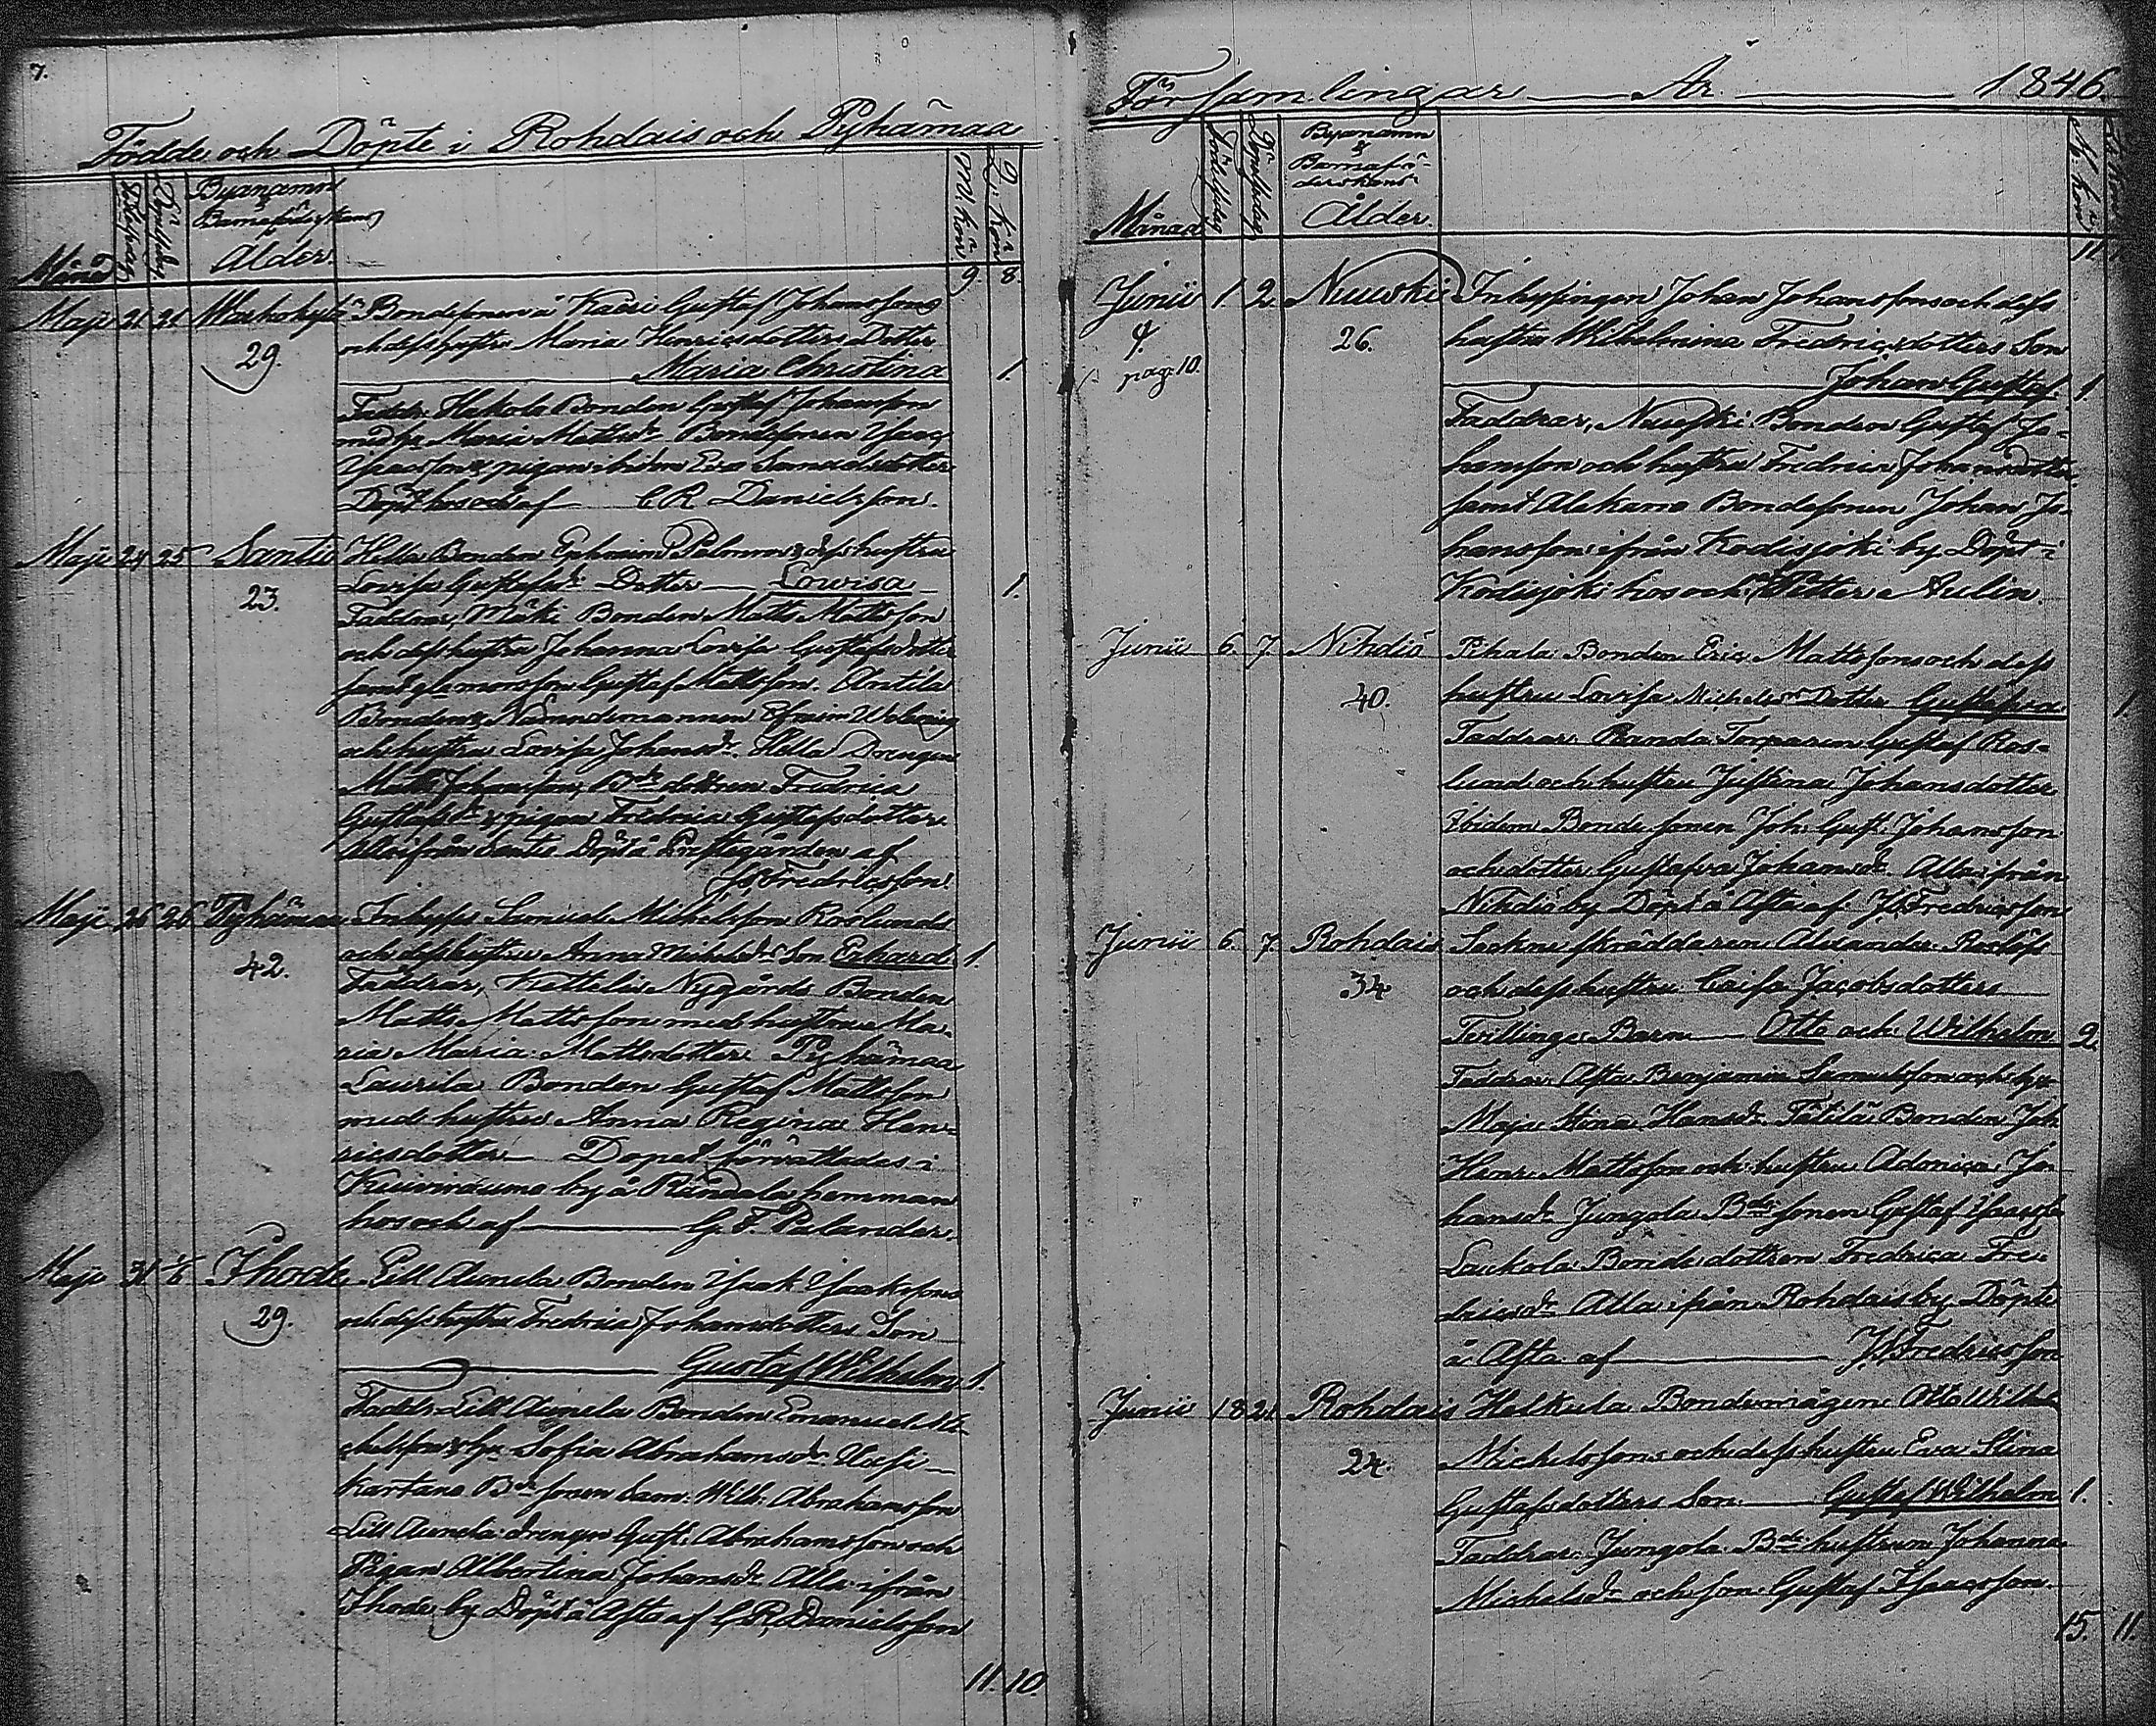 7.
Födde och Döpte i Rohdais och Pyhämaa
Månad
Födelsedag
Döpelsedag
Byanamn
&
Ålder.
M. kön
Q. kön
9 8
Maji 21 21 Warhokylä Bondesonen å Gustaf Johanssons
29. och dess hustru Maria Henricsdotters Dotter
Maria Christina 1.
Faddr. Hakola Bonden Gustaf Johansson
med hu Maria Mattsdr Bondesonen Isaac
Isacsson & pigan ibidem Eva Samuelsdotter
Döpt hos och af C R Danielsson.
Maji 24 25 Santio Hella Bonden Ephraim Palomon & dess hustru
23. Lovisa Gustafsdr Dotter Lowisa 1.
Faddrar, Mäki Bonden Matts Mattsson
och dess hustru Johanna Lovisa Gustafsdotter
samt Gustaf Mattsson. Anttila
Bonden & Nämndemannen Efraim
och hustru Lovisa Johansdr. Hella Drengen
Matts Johansson, Bde dottren Fredrica
Gustafsdr & pigan Fredrica Gustafsdotter
alla ifrån Santio. Döpt å Prestegården af
J. Fredricsson.
Maji 25 26 Pyhämaa Inhyses Samuel Michelsson Roslunds
42. och dess hustru Anna Michelsdrs Son Erhard 1.
Faddrar, Kettelin Nygårds Bonden
Matts Mattsson med hustru Ma-
ria Maria Mattsdotter Pyhämaa
Laurila Bonden Gustaf Mattsson
med hustru Anna Regina Hen-
ricsdotter Dopet förrättades i
Kuivrauma by å Rändala hemman
hos och af G. F. Palander.
Maji 31 1/6 Ihode Lill Aunela Bonden Isaak Isaakssons
29. och dess hustru Fredrica Johansdotters Son
Gustaf Wilhelm 1.
Faddr. Lill Aunela Bonden Emanuel Mi-
chelsson & hu Sofia Abrahamsdr Uusi-
kartano Bde sonen Wilh: Abrahamsson
Lill Aunela drengen Gust: Abrahamsson och
Pigan Albertina Johansdr Alla ifrån
Ihode by Döpt å Afta af C R Danielsson
11. 10.
Församlingar År 1846.
Månad
Födelsedag
Döpelsedag
Byanamn
&
Ålder.
M kön
11
Junii 1. 2. Nuuski Inhysingen Johan Johanssons och dess
26. hustru Wilhelmina Fredricsdotters Son
pag: 10. Johan Gustaf. 1
Faddrar, Nuuski Bonden Gustaf Jo-
hansson och hustru Fredrica Johansdotter
samt Alakarro Bondesonen Johan Jo-
hansson ifrån Kodisjoki by Döpt i
Kodisjoki hos och Petter Aulin.
Junii 6. 7. Nihdiö Pihala Bonden Eric Mattssons och dess
40. hustru Lovisa Michelsdrs Dotter Gustafva 1.
Faddrar. Randa Torparen Gustaf Ros-
lund och hustru Justina Johansdotter
Ibidem Bonde sonen Joh: Gust: Johansson
och dotter Gustafva Johansdr. Alla ifrån
Nihdiö by Döpt å Afta af J. Fredricsson
Junii 6. 7. Rohdais Sockne skräddaren Alexander
34 och dess hustru Caisa Jacobsdotters
Tvillinge Barn Otto och Wilhelm 2.
Faddrar. Afta Benjamin Samuelsson och hu
Maja Stina Hansdr. Tätilä Bonden Joh
Henr. Mattsson och hustru Adonica Jo-
hansdr Jungola Bde sonen Gustaf Isacss
Laukola Bonde dottren Fredrica Fre-
dricsdr Alla ifrån Rohdais by Döpte
å Afta af J. Fredricsson
Junii 18 21 Rohdais Helkula Bondemågen Otto Wilhelm
24. Michelssons och dess hustru Eva Stina
Gustafsdotters Son. Gustaf Wilhelm 1.
Faddrar. Jungola Bde hustrun Johanna
Michelsdr och son Gustaf Isaacsson.
15. 11.